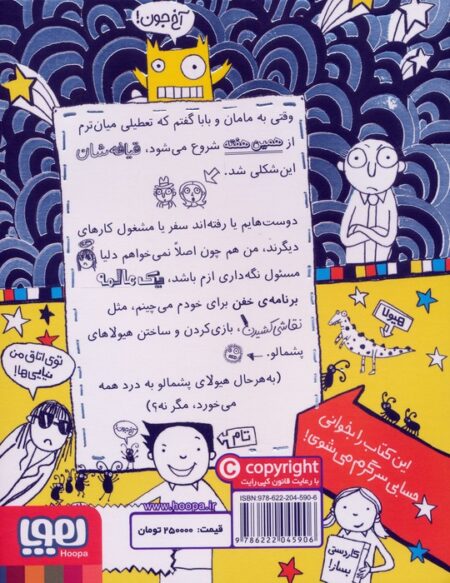 آخ جون!
وقتی به مامان و بابا گفتم که تعطیلی میان‌ترم
از همین هفته شروع می‌شود، قیافه‌شان
این‌شکلی شد.
دوست‌هایم یا رفته‌اند سفر یا مشغول کارهای
دیگرند، من هم چون اصلاً نمی‌خواهم دلیا
مسئول نگه‌داری ازم باشد، یک‌عالمه
برنامه‌ی خفن برای خودم می‌چینم، مثل
نقاشی کشیدن، بازی کردن و ساختن هیولاهای
پشمالو.
(به‌هرحال هیولای پشمالو به درد همه
می‌خورد، مگر نه؟)
هیولا
توی اتاق من
نیایی‌ها!
تام
این کتاب را بخوانی
حسابی سرگرم می‌شوی!
کاردستی
بساز!
© copyright
با رعایت قانون کپی‌رایت
ISBN: 978-622-204-590-6
9 786222 045906
www.hoopa.ir
قیمت: ۲۵۰۰۰۰ تومان
هوپا
Hoopa